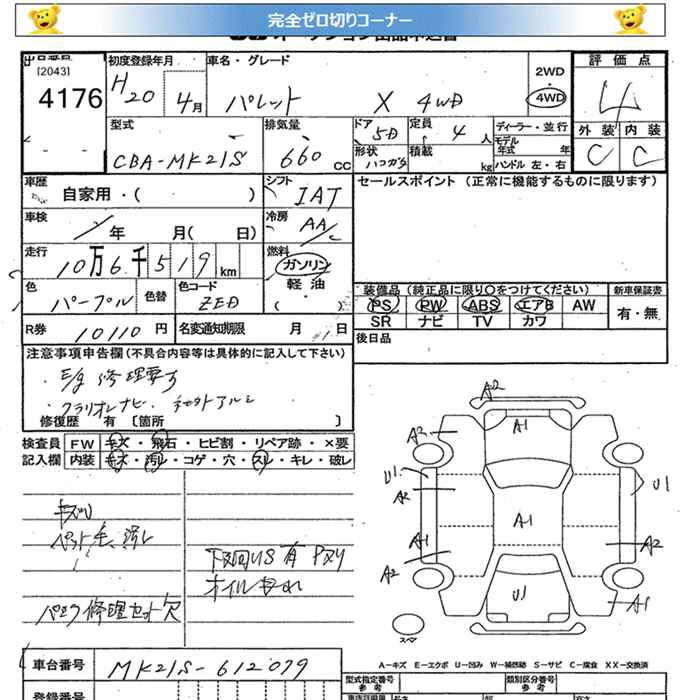 完全ゼロ切りコーナー
[2043]
4176
初度登録年月
H20 4月
車名・グレード
パレット X 4WD
2WD
・
4WD
評価点
4
外装 内装
C C
型式
CBA-MK21S
排気量
660 CC
ドア
5D
形状
ハコガタ
定員
4 人
積載
kg
ディーラー・並行
モデル年式 年
ハンドル 左・右
車歴
自家用・( )
シフト
IAT
セールスポイント (正常に機能するものに限ります)
車検
年 月( 日)
冷房
AA/C
走行
10万6千519km
燃料
ガソリン
軽油
( )
色
パープル
色替
色コード
ZED
装備品(純正品に限り○をつけてください)
PS PW ABS エアB AW
SR ナビ TV カワ
新車保証書
有・無
R券
10110円
名変通知期限 月 日
後日品
注意事項申告欄(不具合内容等は具体的に記入して下さい)
・E/g 修理要す
・クラリオンナビ・社外アルミ
修復歴 有 〔箇所 〕
検査員 FW キズ・飛石・ヒビ割・リペア跡・×要
記入欄 内装 キズ・汚レ・コゲ・穴・スレ・キレ・破レ
ペット毛 汚レ
下回りUS有 Pヌリ
オイルもれ
パンク修理セット欠
A2
A1
A2
U1
A2
A1
A2
A1
U1
U1
A2
A1
スペア
A-キズ E-エクボ U-凹み W-補修跡 S-サビ C-腐食 XX-交換済
車台番号
MK21S-612079
型式指定番号
参考
類別区分番号
参考
登録番号
長さ
高さ